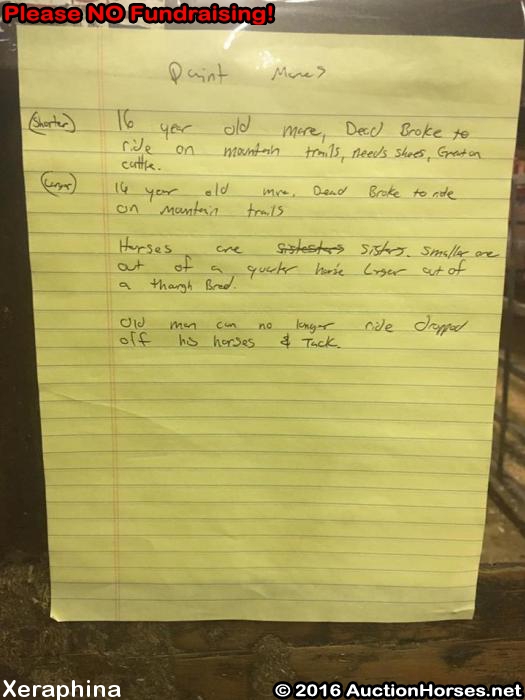 Please NO Fundraising!
Paint Mares
(Shorter) 16 year old mare, Dead Broke to
ride on mountain trails, needs shoes, Great on
cattle.
(Larger) 16 year old mre. Dead Broke to ride
on mountain trails
Horses are sistesters sisters. Smaller one
out of a quarter horse Larger out of
a though Bred.
Old man can no longer ride dropped
off his horses & Tack.
Xeraphina
© 2016 AuctionHorses.net